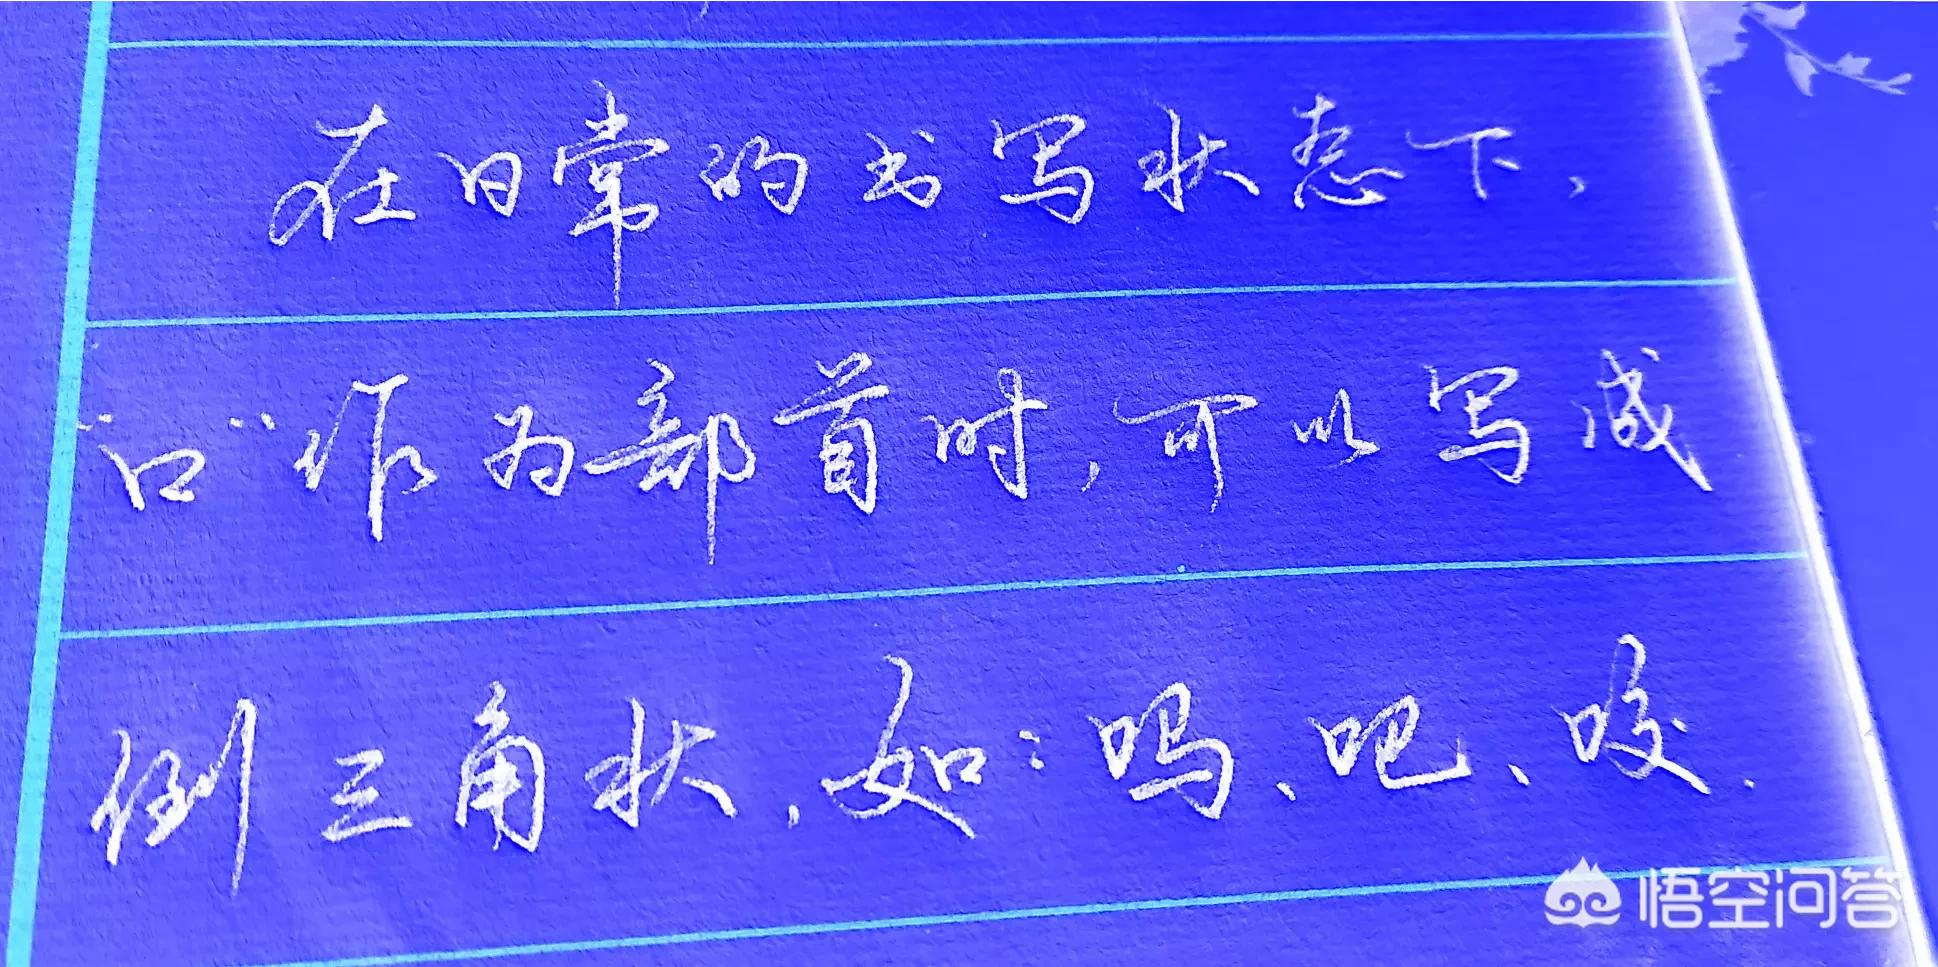 在日常的书写状态下，
"口"作为部首时，可以写成
倒三角状，如：吗、吧、咬、
悟空问答